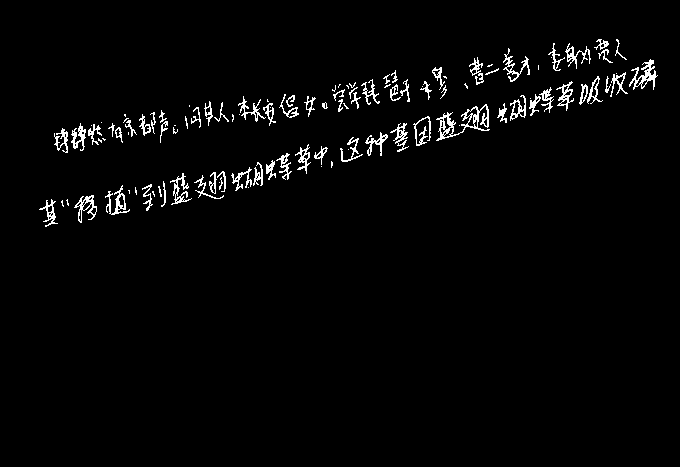 铮铮然有京都声。问其人,本长安倡女。尝学琵琶于穆、曹二善才,委身为贾人
其“移植”到蓝翅蝴蝶草中,这种基因蓝翅蝴蝶草吸收磷